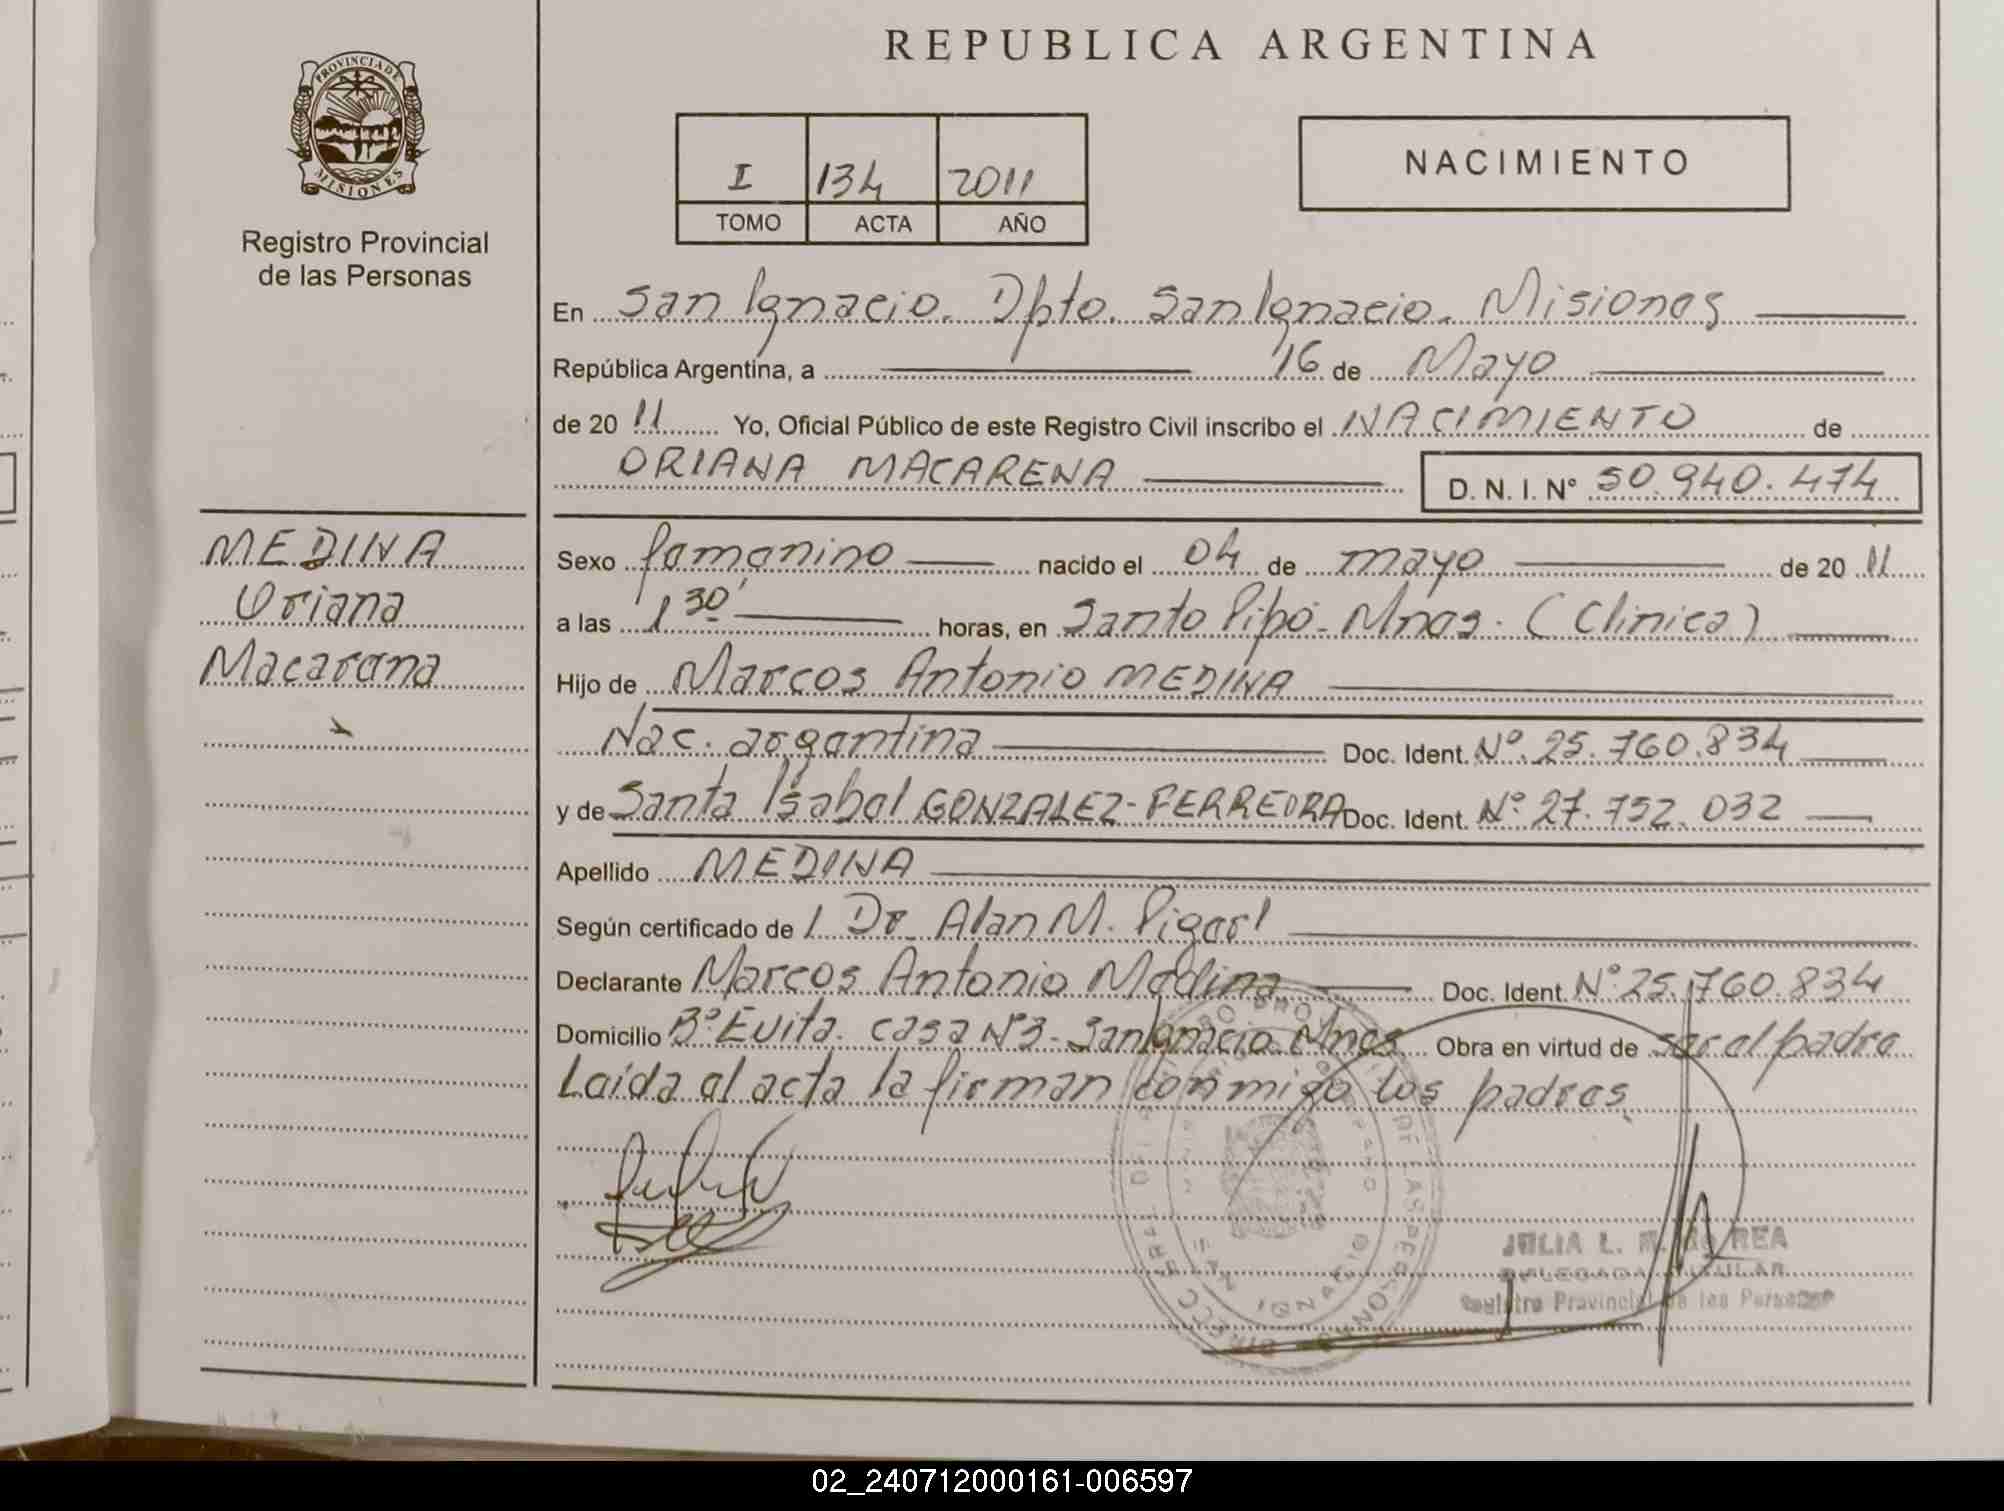 REPUBLICA ARGENTINA
PROVINCIA DE
MISIONES
Registro Provincial
de las Personas
I 134 2011
TOMO ACTA AÑO
NACIMIENTO
En San Ignacio. Dpto. San Ignacio. Misiones
República Argentina, a 16 de Mayo
de 2011 Yo, Oficial Público de este Registro Civil inscribo el NACIMIENTO de
ORIANA MACARENA D. N. I. Nº 50.940.474
MEDINA
Oriana
Macarena
Sexo femenino nacido el 04 de mayo de 2011
a las 1 30' horas, en Santo Pipó - Mnes. (Clinica)
Hijo de Marcos Antonio MEDINA
Nac. argentina Doc. Ident. Nº 25.760.834
y de Santa Isabel GONZALEZ - FERREIRA Doc. Ident. Nº 27.752.032
Apellido MEDINA
Según certificado de l Dr. Alan M.
Declarante Marcos Antonio Medina Doc. Ident. Nº 25.760.834
Domicilio Bº Evita. casa Nº3 - San Ignacio Mnes Obra en virtud de ser el padre
Leída el acta la firman conmigo los padres.
JULIA L. M.
DELEGADA TITULAR
Registro Provincial de las Personas
SAN IGNACIO
02_240712000161-006597